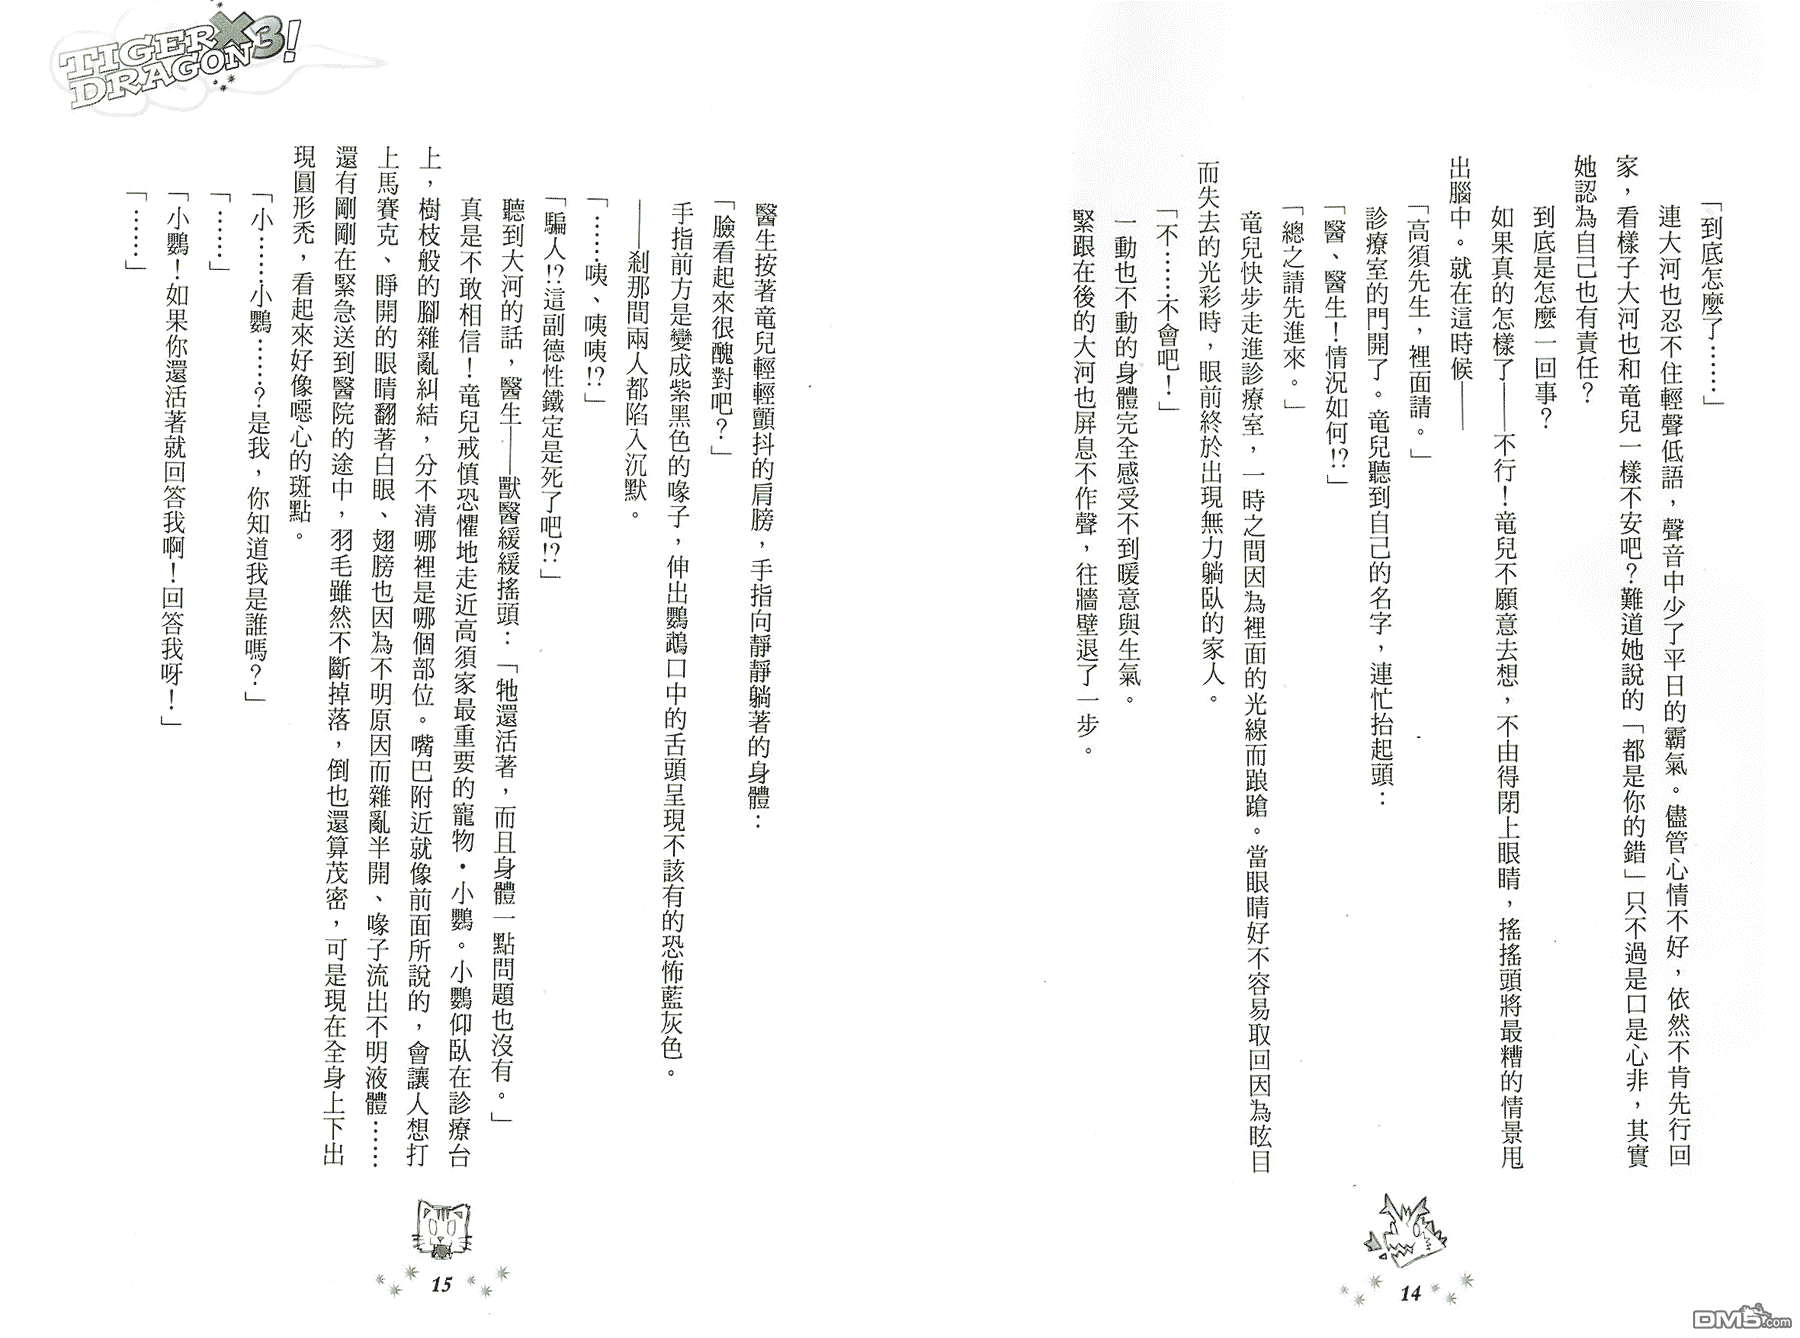 「到底怎麼了……」
連大河也忍不住輕聲低語，聲音中少了平日的霸氣。儘管心情不好，依然不肯先行回
家，看樣子大河也和竜兒一樣不安吧？難道她說的「都是你的錯」只不過是口是心非，其實
她認為自己也有責任？
到底是怎麼一回事？
如果真的怎樣了——不行！竜兒不願意去想，不由得閉上眼睛，搖搖頭將最糟的情景甩
出腦中。就在這時候——
「高須先生，裡面請。」
診療室的門開了。竜兒聽到自己的名字，連忙抬起頭：
「醫、醫生！情況如何!?」
「總之請先進來。」
竜兒快步走進診療室，一時之間因為裡面的光線而踉蹌。當眼睛好不容易取回因為眩目
而失去的光彩時，眼前終於出現無力躺臥的家人。
「不……不會吧！」
一動也不動的身體完全感受不到暖意與生氣。
緊跟在後的大河也屏息不作聲，往牆壁退了一步。
14
TIGER X DRAGON 3!
醫生按著竜兒輕輕顫抖的肩膀，手指向靜靜躺著的身體：
「臉看起來很醜對吧？」
手指前方是變成紫黑色的喙子，伸出鸚鵡口中的舌頭呈現不該有的恐怖藍灰色。
——剎那間兩人都陷入沉默。
「……咦、咦咦!?」
「騙人!?這副德性鐵定是死了吧!?」
聽到大河的話，醫生——獸醫緩緩搖頭：「牠還活著，而且身體一點問題也沒有。」
真是不敢相信！竜兒戒慎恐懼地走近高須家最重要的寵物・小鸚。小鸚仰臥在診療台
上，樹枝般的腳雜亂糾結，分不清哪裡是哪個部位。嘴巴附近就像前面所說的，會讓人想打
上馬賽克、睜開的眼睛翻著白眼、翅膀也因為不明原因而雜亂半開、喙子流出不明液體……
還有剛剛在緊急送到醫院的途中，羽毛雖然不斷掉落，倒也還算茂密，可是現在全身上下出
現圓形禿，看起來好像噁心的斑點。
「小……小鸚……？是我，你知道我是誰嗎？」
「……」
「小鸚！如果你還活著就回答我啊！回答我呀！」
「……」
15
DM5.com